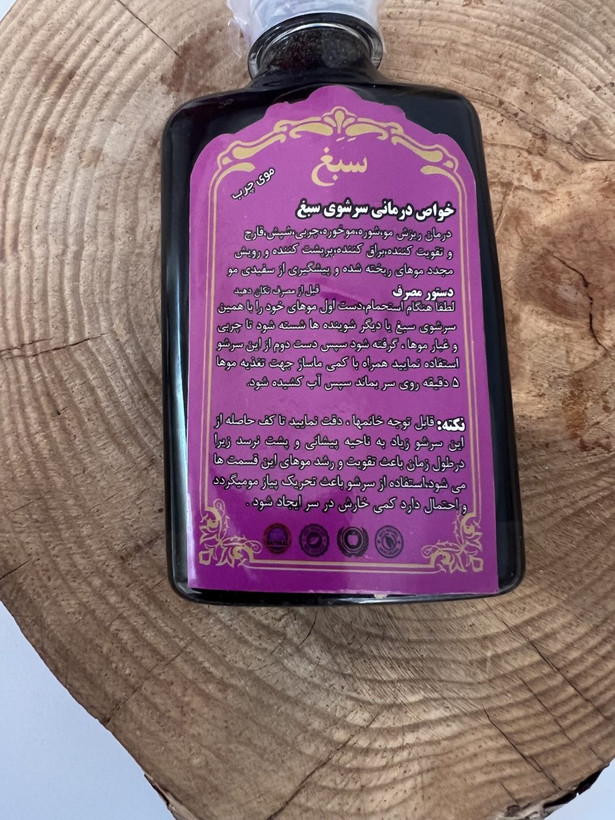 سَبَغ
موی چرب
خواص درمانی سرشوی سبغ
درمان ریزش مو،شوره،موخوره،چربی،شپش،قارچ
و تقویت کننده،براق کننده،پرپشت کننده و رویش
مجدد موهای ریخته شده و پیشگیری از سفیدی مو
دستور مصرف قبل از مصرف تکان دهید
لطفا هنگام استحمام،دست اول موهای خود را با همین
سرشوی سبغ یا دیگر شوینده ها شسته شود تا چربی
و غبار موها، گرفته شود سپس دست دوم از این سرشو
استفاده نمایید همراه با کمی ماساژ جهت تغذیه موها
۵ دقیقه روی سر بماند سپس آب کشیده شود.
نکته: قابل توجه خانمها ، دقت نمایید تا کف حاصله از
این سرشو زیاد به ناحیه پیشانی و پشت نرسد زیرا
درطول زمان باعث تقویت و رشد موهای این قسمت ها
می شود،استفاده از سرشو باعث تحریک پیاز مومیگردد
و احتمال دارد کمی خارش در سر ایجاد شود .